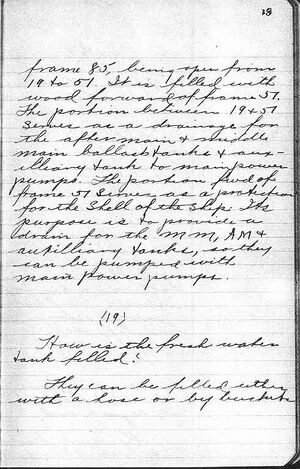 13
frame 85, being open from
19 to 51. It is filled with
wood forward of frame 57.
The portion between 19 & 57
serves as a drainage for
the after main & middle
main ballast tanks & aux-
illiary tank to main power
pumps. The portion fwd of
frame 57 serves as a protection
for the shell of the ship. Its
purpose is to provide a
drain for the MM, AM &
auxilliary tanks, so they
can be pumped with
main power pumps.
(19)
How is the fresh water
tank filled?
They can be filled either
with a hose or by buckets